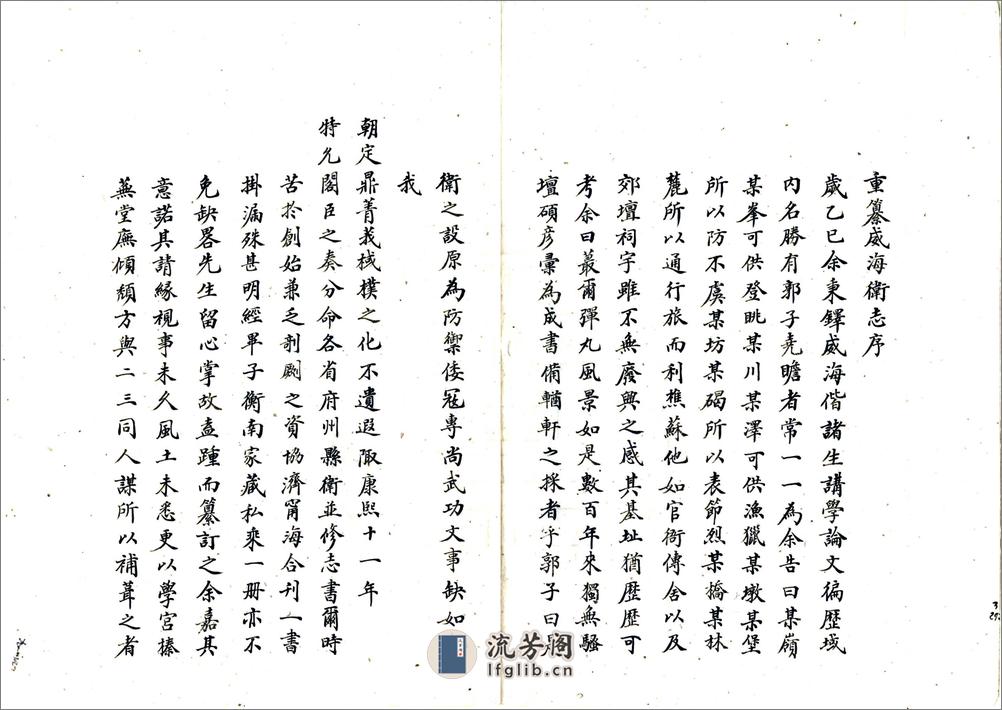 重纂威海衛志序
歲乙巳余秉鐸威海偕諸生講學論文徧歷域
內名勝有郭子堯瞻者常一一為余告曰某嶺
某峯可供登眺某川某澤可供漁獵某墩某堡
所以防不虞某坊某碣所以表節烈某橋某林
麓所以通行旅而利樵蘇他如官衙傳舍以及
郊壇祠宇雖不無廢興之感其基址猶歷歷可
考余曰蕞爾彈丸風景如是數百年來獨無騷
壇碩彥彙為成書備輶軒之採者乎郭子曰
衛之設原為防禦倭寇專尚武功文事缺如
我
朝定鼎菁莪棫樸之化不遺遐陬康熙十一年
特允閣臣之奏分命各省府州縣衛並修志書爾時
苦於創始兼乏剞劂之資協濟甯海合刊一書
掛漏殊甚明經畢子衡南家藏私乘一册亦不
免缺畧先生留心掌故盍踵而纂訂之余嘉其
意諾其請緣視事未久風土未悉更以學宮榛
蕪堂廡傾頹方與二三同人謀所以補葺之者
流芳閣
lfglib.cn